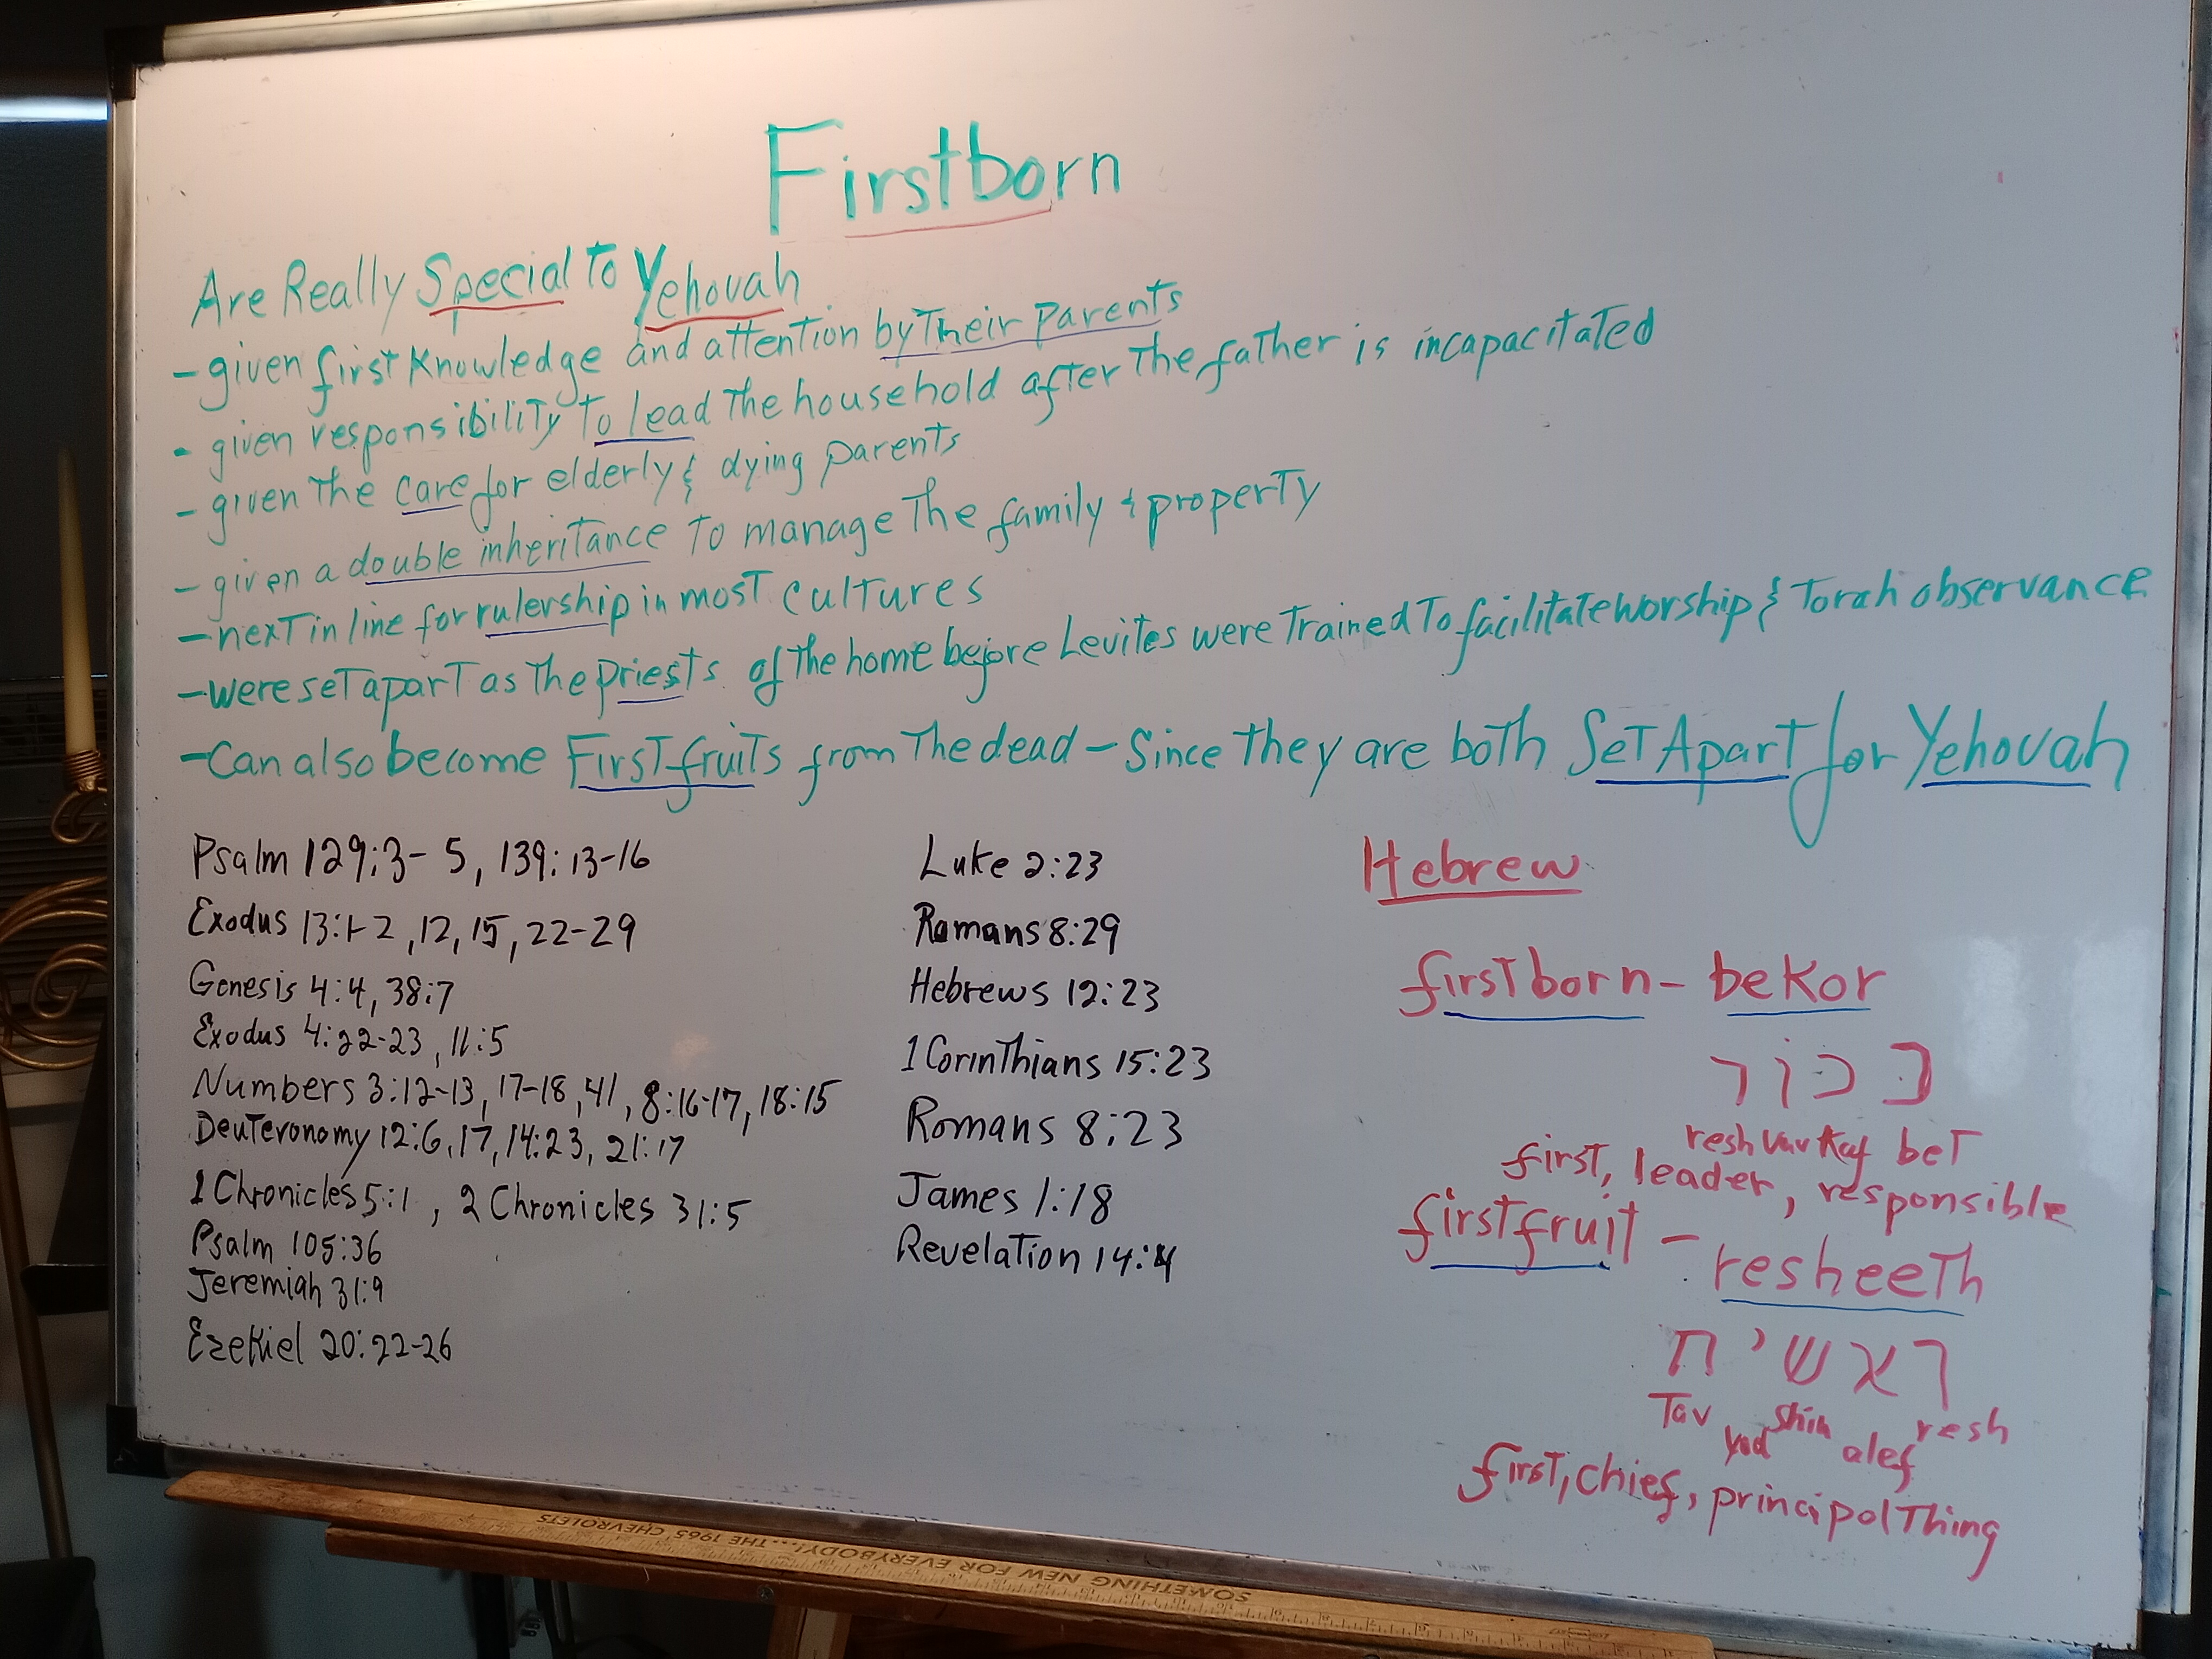 Firstborn
Are Really Special To Yehovah
- given first Knowledge and attention by Their Parents
- given responsibility To lead The household after The father is incapacitated
- given The care for elderly & dying parents
- given a double inheritance To manage The family + property
- next in line for rulership in most cultures
- were set apart as The priests of The home before Levites were Trained To facilitate worship & Torah observance
- Can also become Firstfruits from The dead - Since they are both Set Apart for Yehovah
Psalm 129:3-5, 139:13-16
Exodus 13:1-2, 12, 15, 22-29
Genesis 4:4, 38:7
Exodus 4:22-23, 11:5
Numbers 3:12-13, 17-18, 41, 8:16-17, 18:15
Deuteronomy 12:6, 17, 14:23, 21:17
1 Chronicles 5:1, 2 Chronicles 31:5
Psalm 105:36
Jeremiah 31:9
Ezekiel 20:22-26
Luke 2:23
Romans 8:29
Hebrews 12:23
1 Corinthians 15:23
Romans 8:23
James 1:18
Revelation 14:4
Hebrew
firstborn - bekor
בכור
resh vav Kaf bet
first, leader, responsible
firstfruit - resheeth
ראשית
Tav yod shin alef resh
first, chief, principol Thing
SOMETHING NEW FOR EVERYBODY!...THE 1965 CHEVROLETS